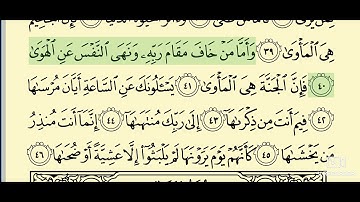 ٱلْحَيَوٰةَ ٱلدُّنْيَا فَإِنَّ ٱلْجَحِيمَ
هِىَ ٱلْمَأْوَىٰ ٣٩ وَأَمَّا مَنْ خَافَ مَقَامَ رَبِّهِۦ وَنَهَى ٱلنَّفْسَ عَنِ ٱلْهَوَىٰ
٤٠ فَإِنَّ ٱلْجَنَّةَ هِىَ ٱلْمَأْوَىٰ ٤١ يَسْـَٔلُونَكَ عَنِ ٱلسَّاعَةِ أَيَّانَ مُرْسَىٰهَا
٤٢ فِيمَ أَنتَ مِن ذِكْرَىٰهَآ ٤٣ إِلَىٰ رَبِّكَ مُنتَهَىٰهَآ ٤٤ إِنَّمَآ أَنتَ مُنذِرُ
مَن يَخْشَىٰهَا ٤٥ كَأَنَّهُمْ يَوْمَ يَرَوْنَهَا لَمْ يَلْبَثُوٓا۟ إِلَّا عَشِيَّةً أَوْ ضُحَىٰهَا ٤٦